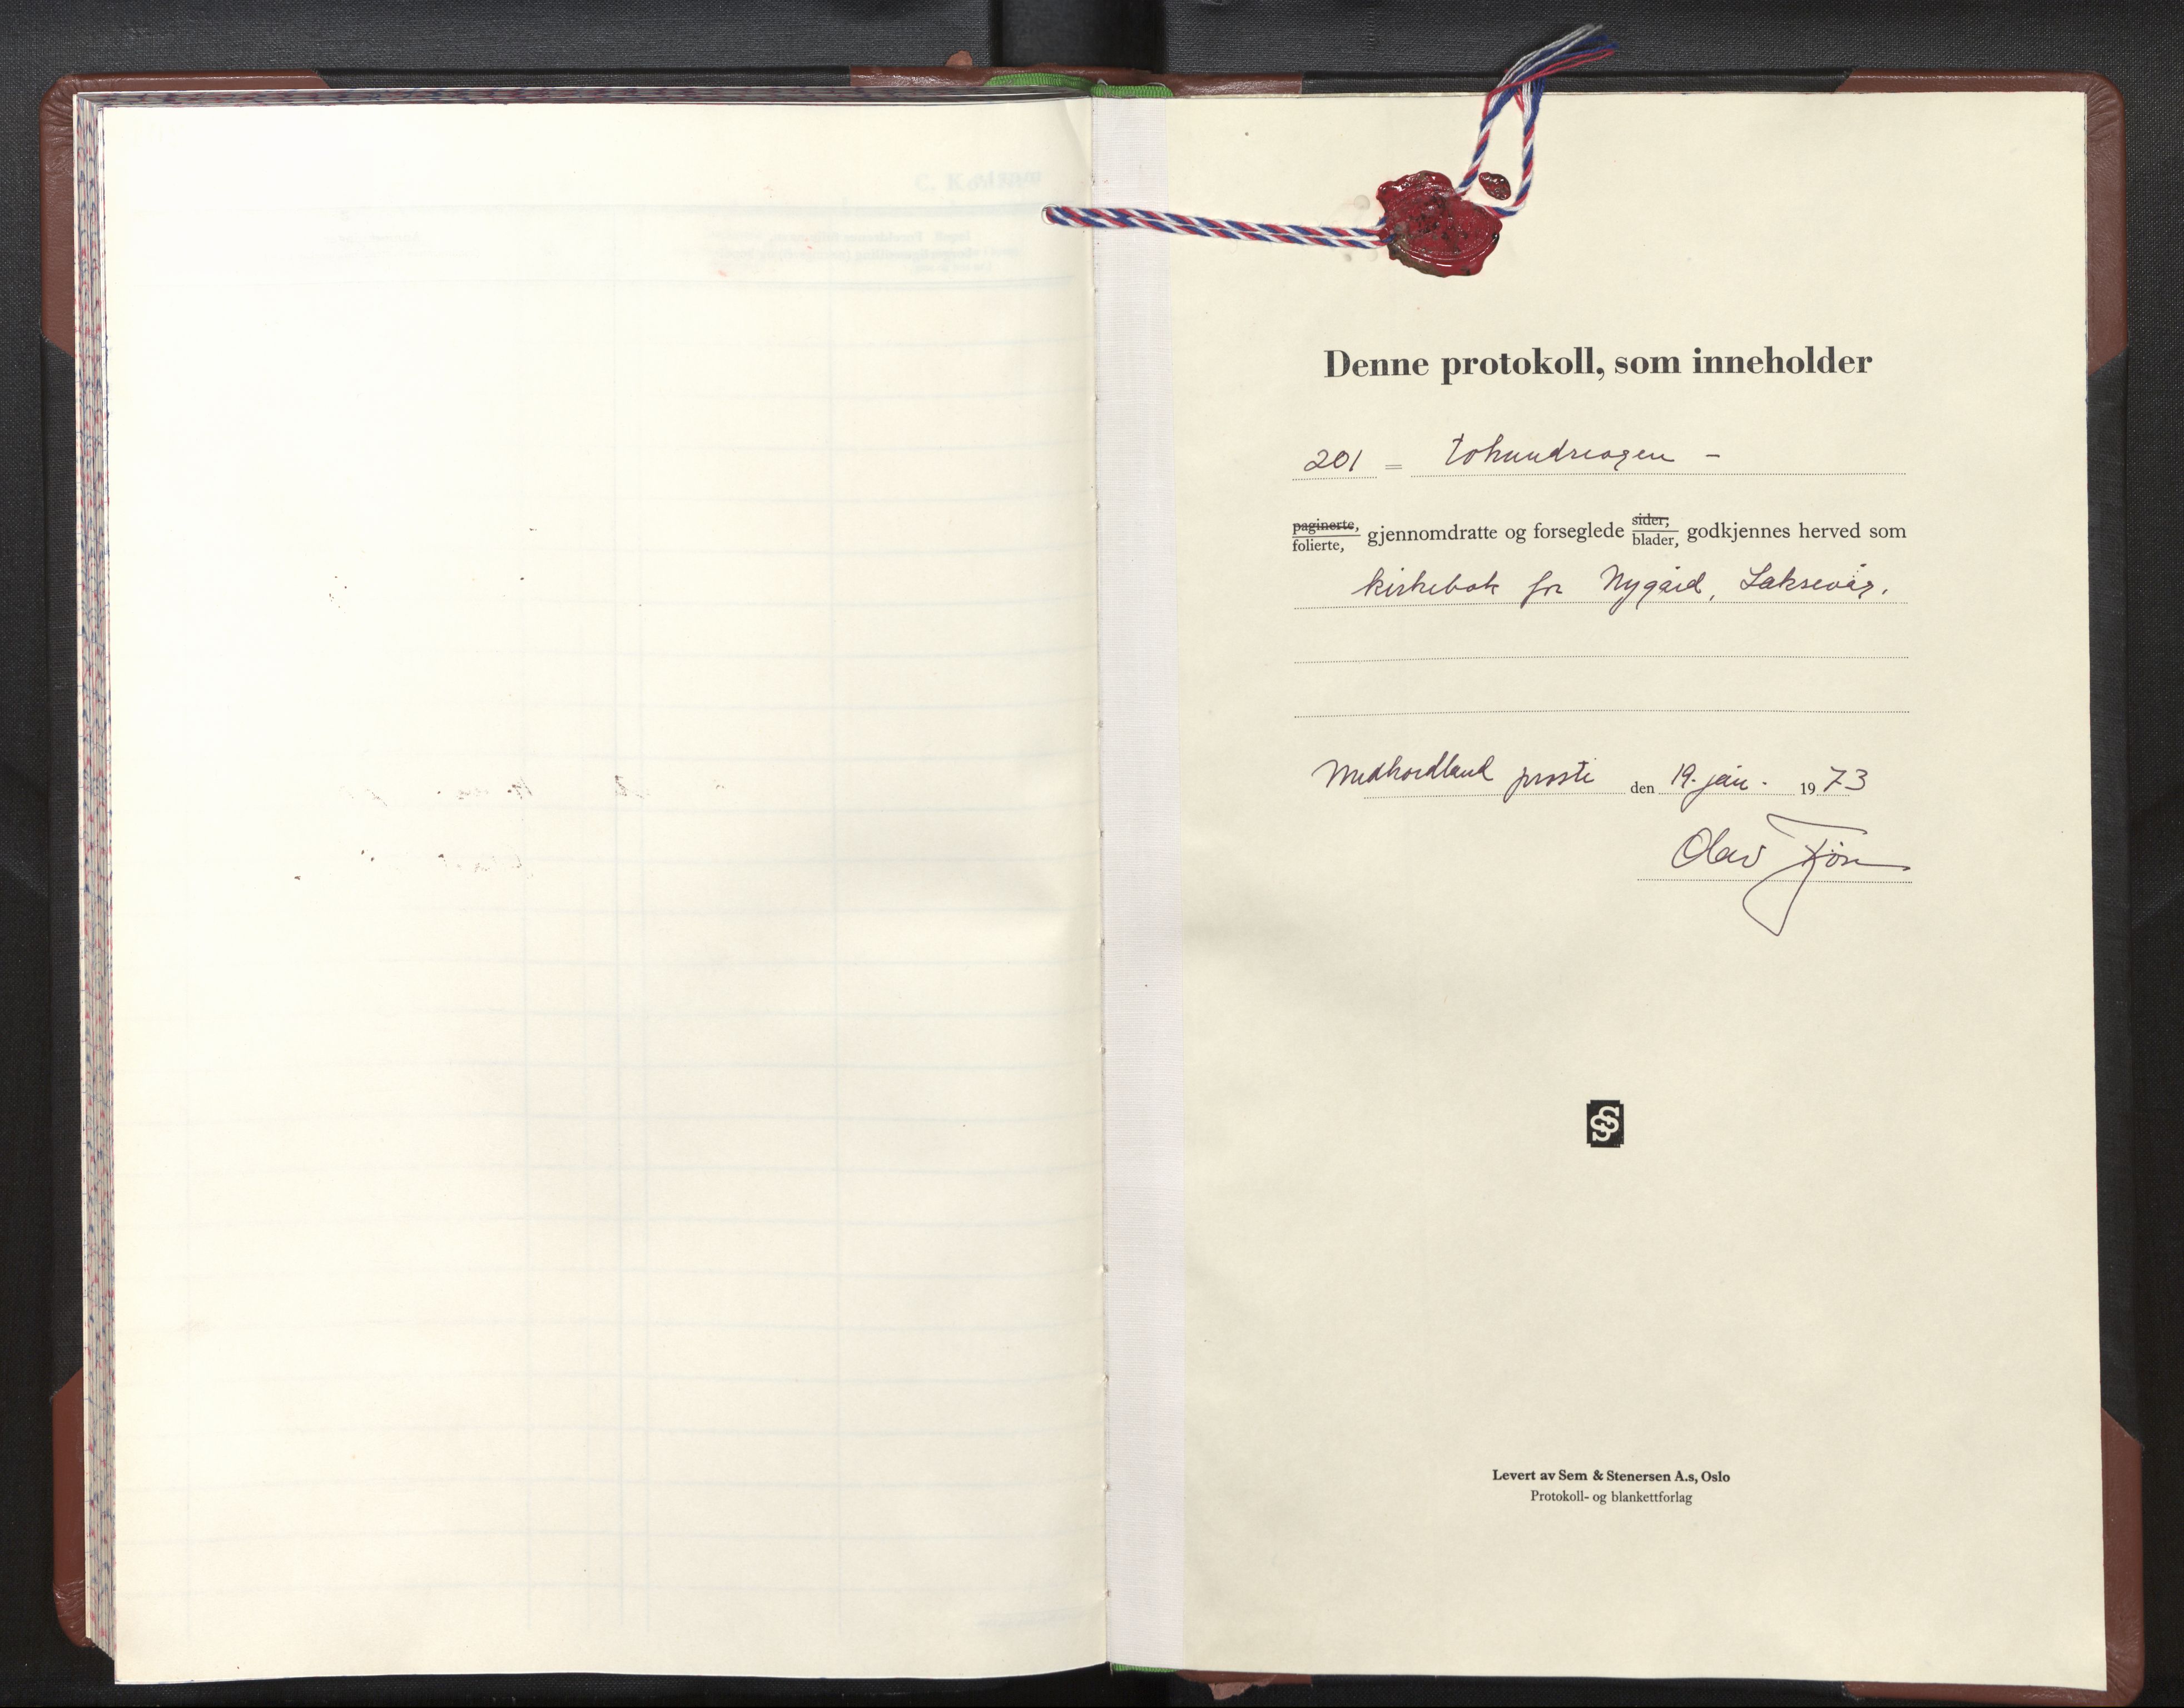 Denne protokoll, som inneholder
201 = tohundreogen -
paginerte, gjennomdratte og forseglede sider, godkjennes herved som
folierte, blader,
kirkebok for Nygård, Laksevåg.
Midhordland prosti den 19. jan. 1973
Olav
SS
Levert av Sem & Stenersen A.s, Oslo
Protokoll- og blankettforlag